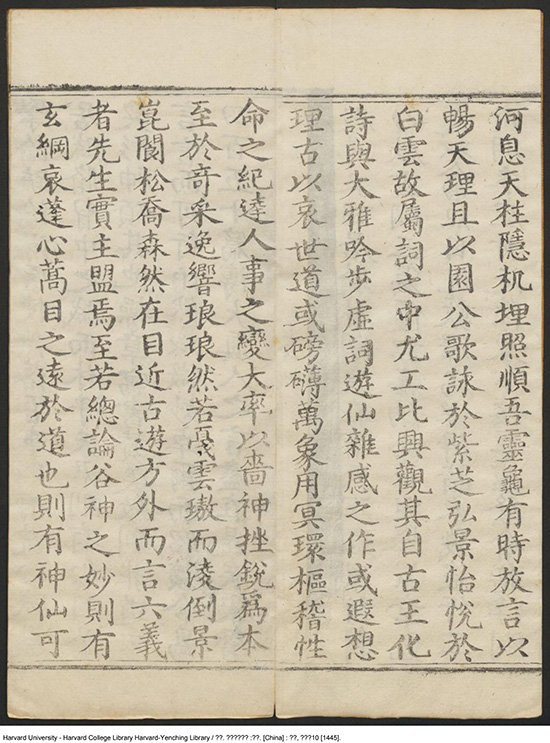 河息天柱隱机埋照順吾靈龜有時放言以
暢天理且以園公歌詠於紫芝弘景怡悅於
白雲故屬詞之中尤工比興觀其自古王化
詩與大雅吟步虛詞遊仙雜感之作或遐想
理古以哀世道或磅礴萬象用冥環樞稽性
命之紀達人事之變大率以嗇神挫銳為本
至於奇采逸響琅琅然若戛雲璈而淩倒景
崑閬松喬森然在目近古遊方外而言六義
者先生實主盟焉至若總論谷神之妙則有
玄綱哀蓬心蒿目之遠於道也則有神仙可
Harvard University - Harvard College Library Harvard-Yenching Library / ??. ?????? :??. [China] : ??, ???10 [1445].